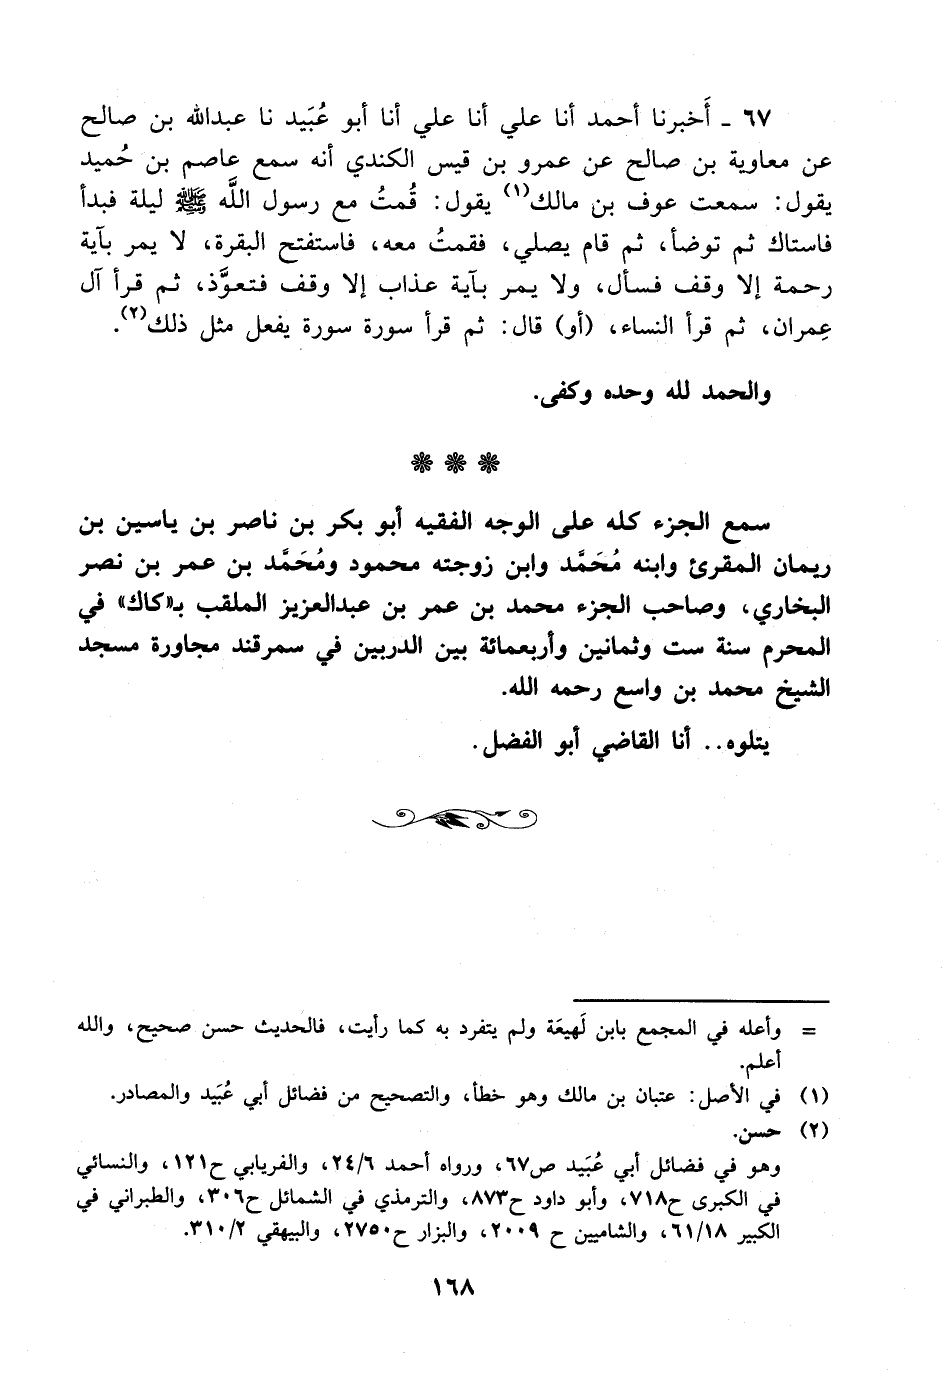 ٦٧ ـ أَخبرنا أحمد أنا علي أنا علي أنا أبو عُبَيد نا عبدالله بن صالح
عن معاوية بن صالح عن عمرو بن قيس الكندي أنه سمع عاصم بن حُميد
يقول: سمعت عوف بن مالك(١) يقول: قُمتُ مع رسول اللَّه ﷺ ليلة فبدأ
فاستاك ثم توضأ، ثم قام يصلي، فقمتُ معه، فاستفتح البقرة، لا يمر بآية
رحمة إلا وقف فسأل، ولا يمر بآية عذاب إلا وقف فتعوَّذ، ثم قرأ آل
عِمران، ثم قرأ النساء، (أو) قال: ثم قرأ سورة سورة يفعل مثل ذلك(٢).
والحمد لله وحده وكفى.
سمع الجزء كله على الوجه الفقيه أبو بكر بن ناصر بن ياسين بن
ريمان المقرئ وابنه مُحَمَّد وابن زوجته محمود ومُحَمَّد بن عمر بن نصر
البخاري، وصاحب الجزء محمد بن عمر بن عبدالعزيز الملقب بـ«كاك» في
المحرم سنة ست وثمانين وأربعمائة بين الدربين في سمرقند مجاورة مسجد
الشيخ محمد بن واسع رحمه الله.
يتلوه.. أنا القاضي أبو الفضل.
= وأعله في المجمع بابن لَهيعَة ولم يتفرد به كما رأيت، فالحديث حسن صحيح، والله
أعلم.
(١) في الأصل: عتبان بن مالك وهو خطأ، والتصحيح من فضائل أبي عُبَيد والمصادر.
(٢) حسن.
وهو في فضائل أبي عُبَيد ص٦٧، ورواه أحمد ٢٤/٦، والفريابي ح١٢١، والنسائي
في الكبرى ح٧١٨، وأبو داود ح٨٧٣، والترمذي في الشمائل ح٣٠٦، والطبراني في
الكبير ٦١/١٨، والشاميين ح ٢٠٠٩، والبزار ح٢٧٥٠، والبيهقي ٣١٠/٢.
١٦٨